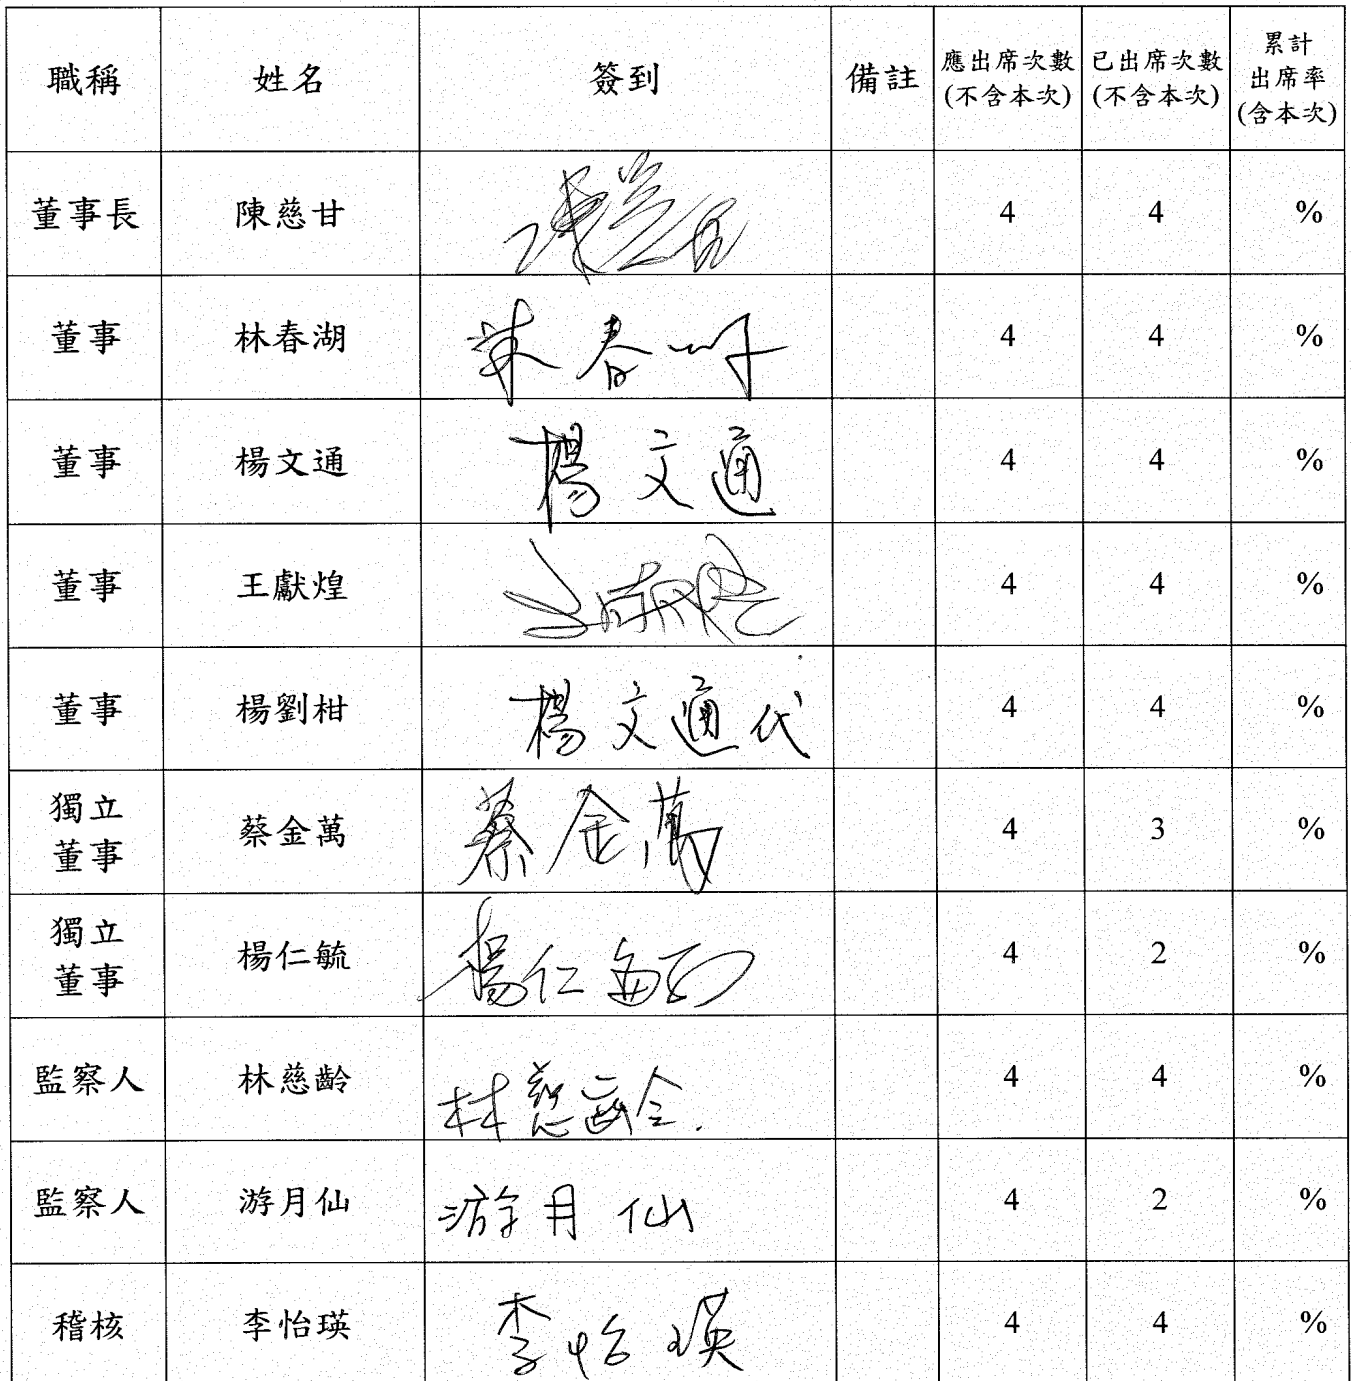 職稱 姓名 簽到 備註 應出席次數 (不含本次) 已出席次數 (不含本次) 累計 出席率 (含本次)
董事長 陳慈甘 4 4 %
董事 林春湖 4 4 %
董事 楊文通 楊文通 4 4 %
董事 王獻煌 4 4 %
董事 楊劉柑 楊文通代 4 4 %
獨立 董事 蔡金萬 蔡金萬 4 3 %
獨立 董事 楊仁毓 楊仁毓 4 2 %
監察人 林慈齡 林慈齡 4 4 %
監察人 游月仙 游月仙 4 2 %
稽核 李怡瑛 李怡瑛 4 4 %